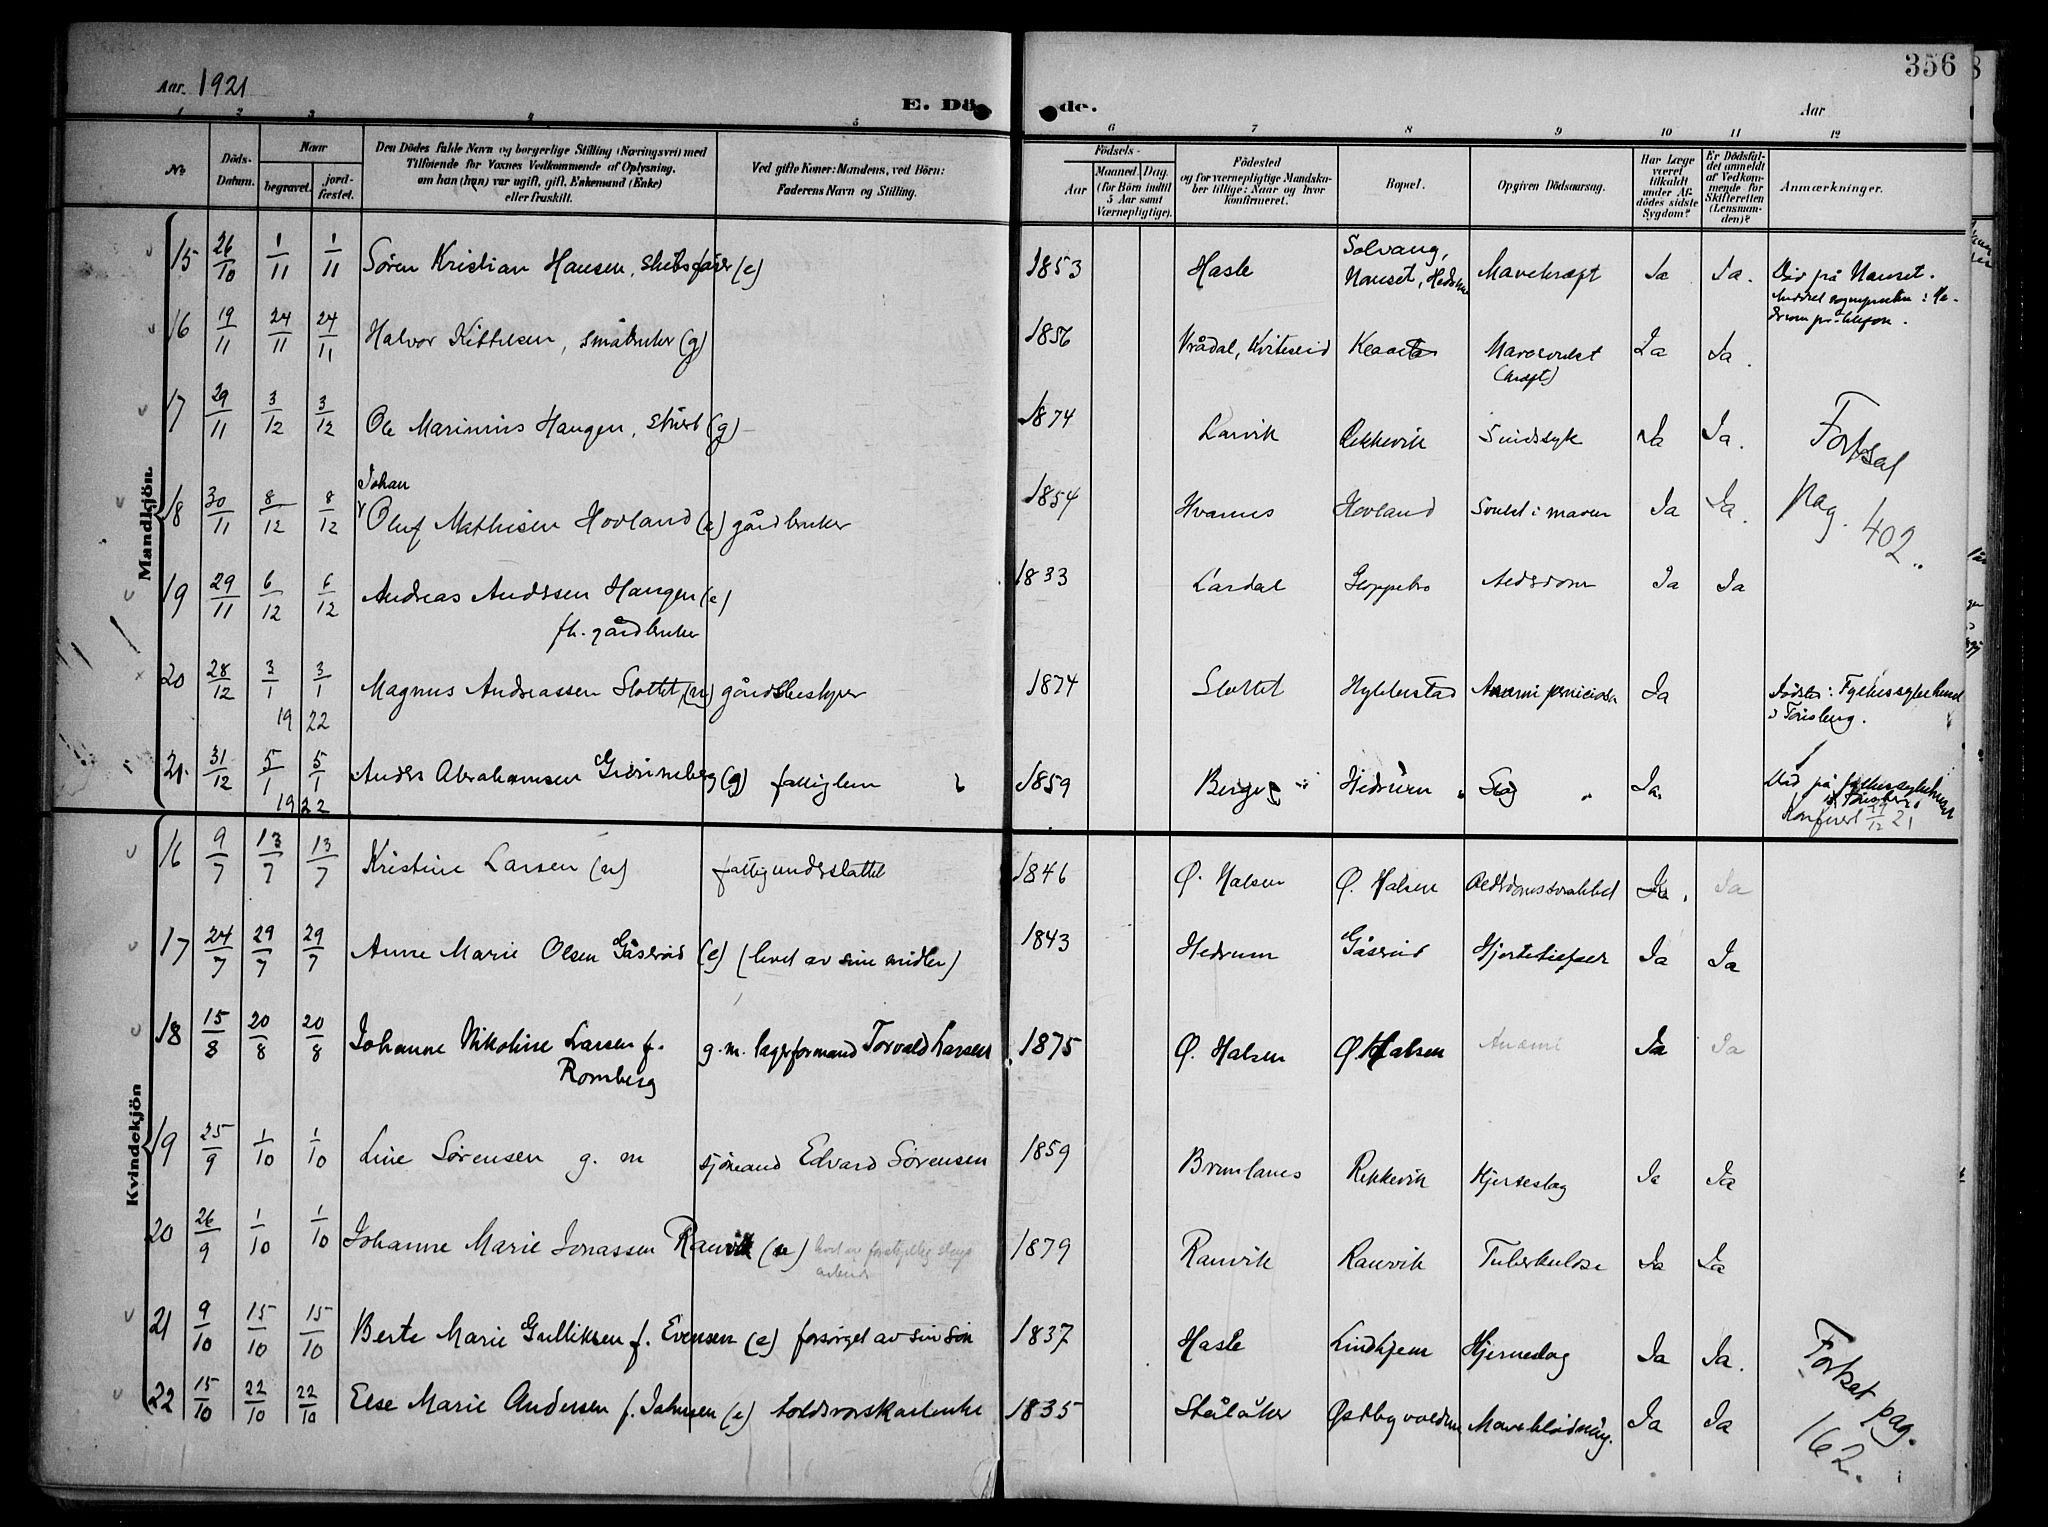 356
Aar. 1921
E. Dö de.
Aar
1 2 3 4 5 6 7 8 9 10 11 12
No
Döds-Datum.
Naar
begravet.
jord-fæstet.
Den Dödes fulde Navn og borgerlige Stilling (Næringsvei) med
Tilföiende for Voxnes Vedkommende af Oplysning,
om han (hun) var ugift, gift, Enkemand (Enke)
eller fraskilt.
Ved gifte Koner: Mandens, ved Börn:
Faderens Navn og Stilling.
Födsels-
Aar
Maaned. Dag.
(for Börn indtil
5 Aar samt
Værnepligtige).
Födested
og for værnepligtige Mandska-
ber tillige: Naar og hvor
konfirmeret.
Bopæl.
Opgiven Dödsaarsag.
Har Læge
været
tilkaldt
under Af-
dödes sidste
Sygdom?
Er Dödsfal-
det anmeldt
af Vedkom-
mende for
Skifteretten
(Lensman-
den)?
Anmærkninger.
Mandkjön
15 26/10 1/11 1/11 Søren Kristian Hansen, (e) 1853 Hasle Solvang, Nanset, Mavekræft Ja Ja. Død på Nanset.
16 19/11 24/11 24/11 Halvor Kittelsen, småbruker (g) 1856 Vrådal, Kviteseid Mavesvulst (kræft) Ja Ja.
17 29/11 3/12 3/12 Ole Marinius Haugen, (g) 1874 Larvik Rekkevik Sindssyk Ja Ja. Fortsat
18 30/11 8/12 8/12 Johan Oluf Mathisen Hovland (e) gårdbruker 1854 Hvarnes Hovland Svulst i maven Ja Ja. pag. 402.
19 29/11 6/12 6/12 Andreas Andersen Haugen (e) 1833 Lardal Gloppebo Alderdom Ja Ja
fh. gårdbruker
20 28/12 3/1 3/1 Magnus Andreassen Slottet, (u) gårdsbestyrer 1874 Slottet Hybbestad Anæmi perniciosa Ja Dødsted: Fylkessykehuset
19 22 i Tønsberg.
21. 31/12 5/1 5/1 Anders Abrahamsen (g) fattiglem 1859 Berge Hedrum Slag Ja. Død på fylkessykehuset
19 22 i Tønsberg
Konferert 29/12 21
Kvindekjön
16 9/7 13/7 13/7 Kristine Larsen (u) fattigunderstøttet 1846 Ø. Halsen Ø. Halsen Alderdomssvakhet Ja. Ja
17 24/7 29/7 29/7 Anne Marie Olsen Gåserød (e) (levet av sine midler) 1843 Hedrum Gåserød Hjertetilfælde Ja Ja
18 15/8 20/8 20/8 Johanne Nikoline Larsen f. g. m. lagerformand Torvald Larsen 1875 Ø. Halsen Ø Halsen Anæmi Ja Ja
Romberg
19 25/9 1/10 1/10 Line Sørensen g. m sjømand Edvard Sørensen 1859 Brunlanes Rekkevik Hjerteslag Ja Ja
20 26/9 1/10 1/10 Johanne Marie Jonassen Ranvik (u) levet av forskjellig slags arbeide 1879 Ranvik Ranvik Tuberkulose Ja Ja
21 9/10 15/10 15/10 Berte Marie Gulliksen f. Evensen (e) forsørget av sin søn 1837 Hasle Lindhjem Hjerneslag Ja Ja. Fortsat pag.
22 15/10 22/10 22/10 Else Marie Andersen f. Jahnsen (e) toldoverskarlenke 1835 Ståláker Østbyvolden Maveblødning. Ja Ja 162.